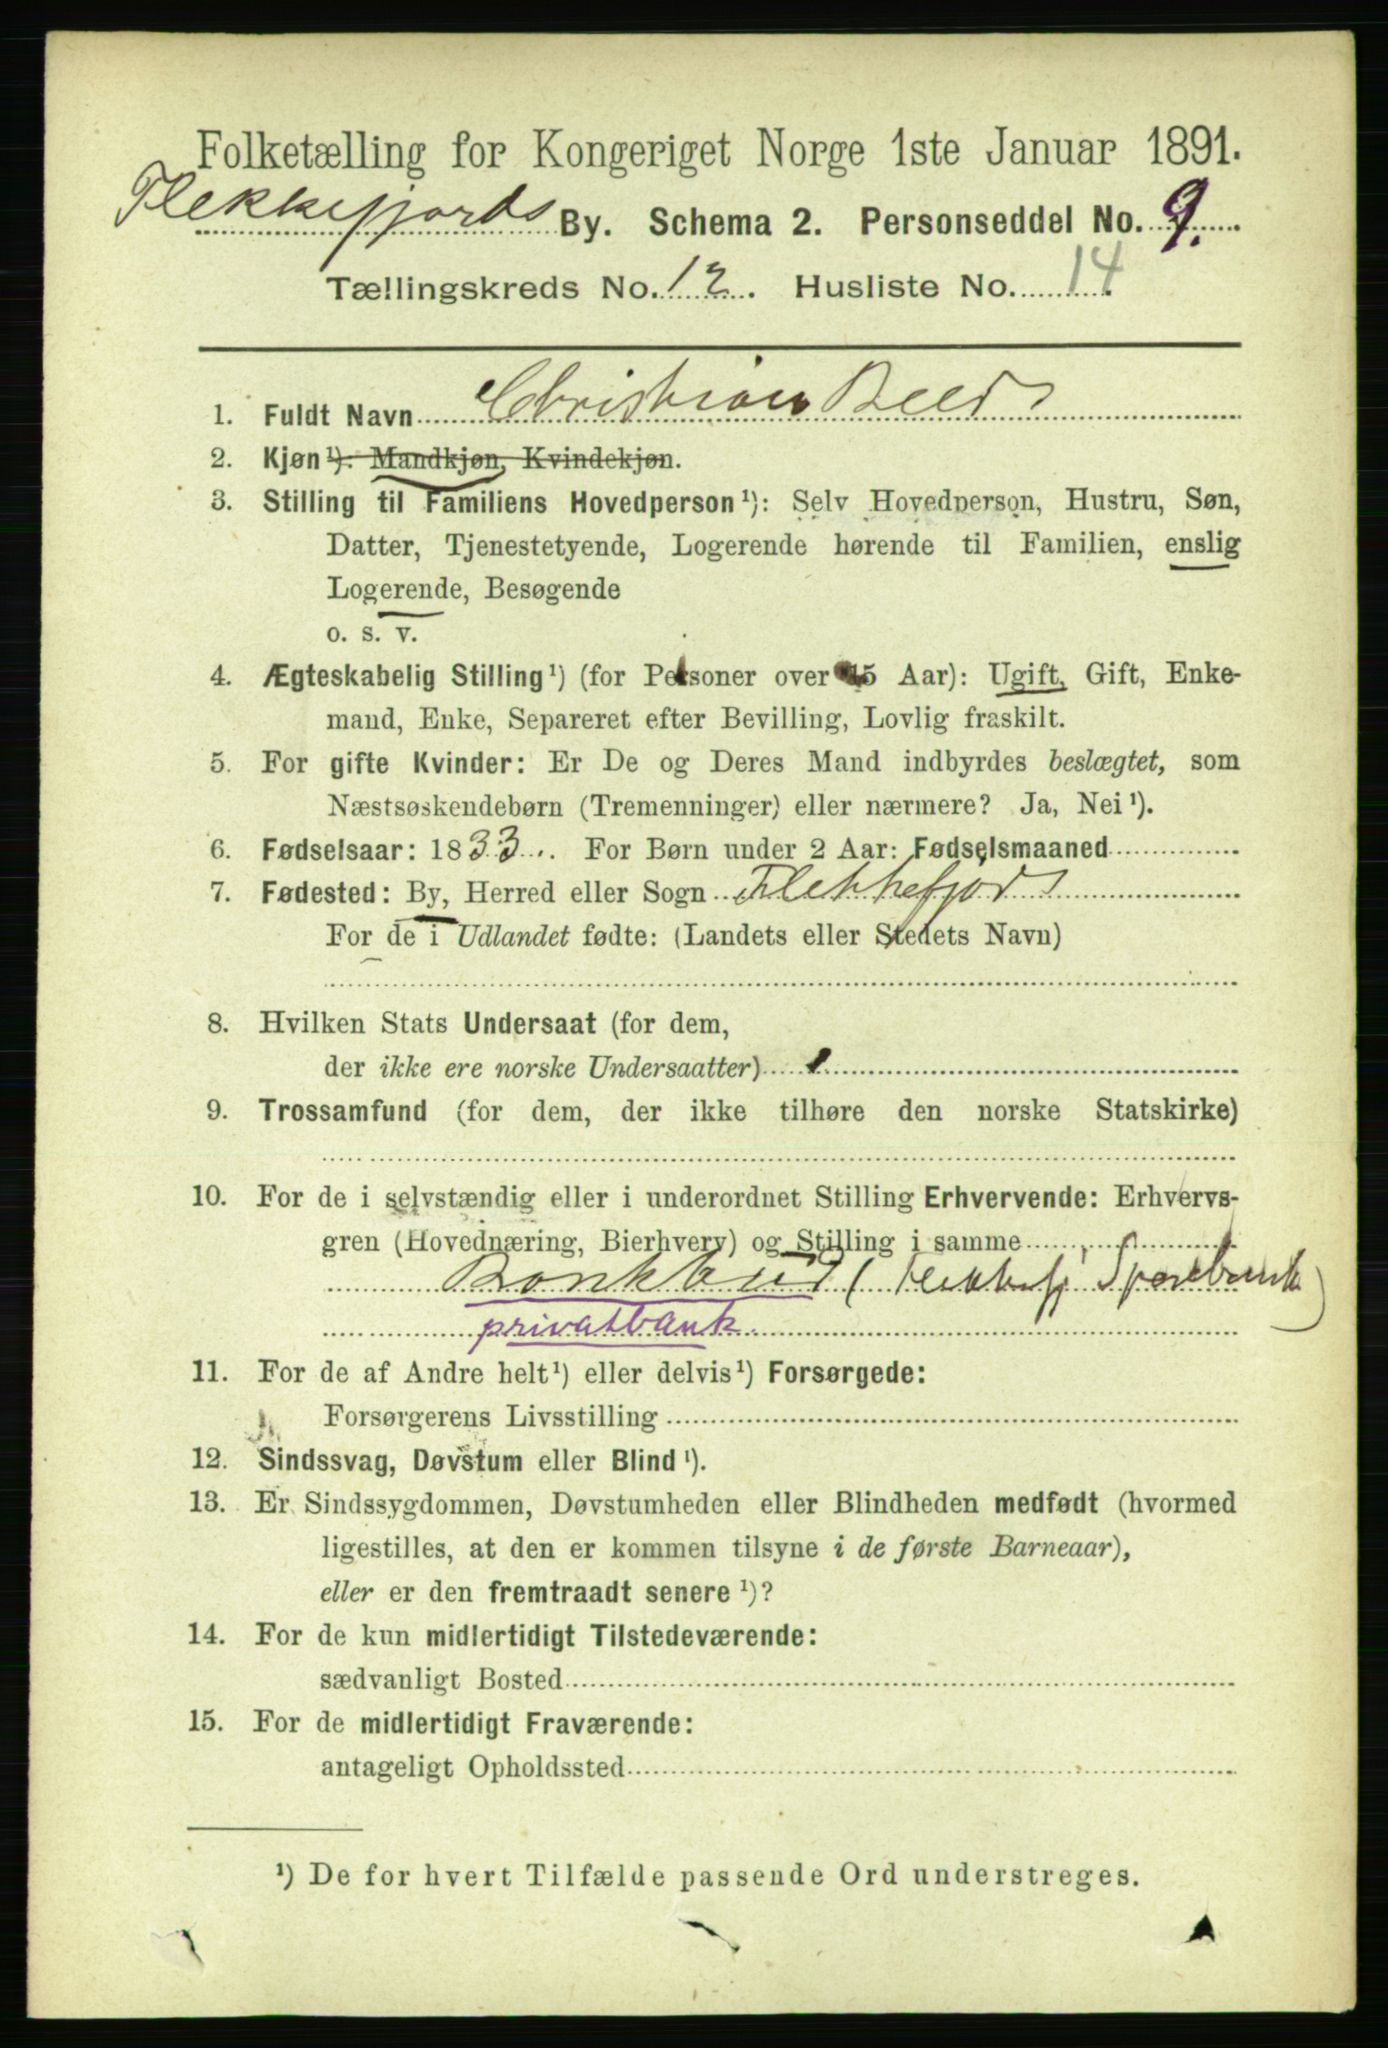 Folketælling for Kongeriget Norge 1ste Januar 1891.
Flekkefjords By. Schema 2. Personseddel No. 9.
Tællingskreds No. 12. Husliste No. 14
1. Fuldt Navn Christian Beer
2. Kjøn ¹): Mandkjøn, Kvindekjøn.
3. Stilling til Familiens Hovedperson ¹): Selv Hovedperson, Hustru, Søn,
Datter, Tjenestetyende, Logerende hørende til Familien, enslig
Logerende, Besøgende
o. s. v.
4. Ægteskabelig Stilling ¹) (for Personer over 15 Aar): Ugift, Gift, Enke-
mand, Enke, Separeret efter Bevilling, Lovlig fraskilt.
5. For gifte Kvinder: Er De og Deres Mand indbyrdes beslægtet, som
Næstsøskendebørn (Tremenninger) eller nærmere? Ja, Nei ¹).
6. Fødselsaar: 1833. For Børn under 2 Aar: Fødselsmaaned
7. Fødested: By, Herred eller Sogn Flekkefjord
For de i Udlandet fødte: (Landets eller Stedets Navn)
8. Hvilken Stats Undersaat (for dem,
der ikke ere norske Undersaatter)
9. Trossamfund (for dem, der ikke tilhøre den norske Statskirke)
10. For de i selvstændig eller i underordnet Stilling Erhvervende: Erhvervs-
gren (Hovednæring, Bierhverv) og Stilling i samme
Bankbud (Flekkefj Sparebank)
privatbank.
11. For de af Andre helt ¹) eller delvis ¹) Forsørgede:
Forsørgerens Livsstilling
12. Sindssvag, Døvstum eller Blind ¹).
13. Er Sindssygdommen, Døvstumheden eller Blindheden medfødt (hvormed
ligestilles, at den er kommen tilsyne i de første Barneaar),
eller er den fremtraadt senere ¹)?
14. For de kun midlertidigt Tilstedeværende:
sædvanligt Bosted
15. For de midlertidigt Fraværende:
antageligt Opholdssted
¹) De for hvert Tilfælde passende Ord understreges.